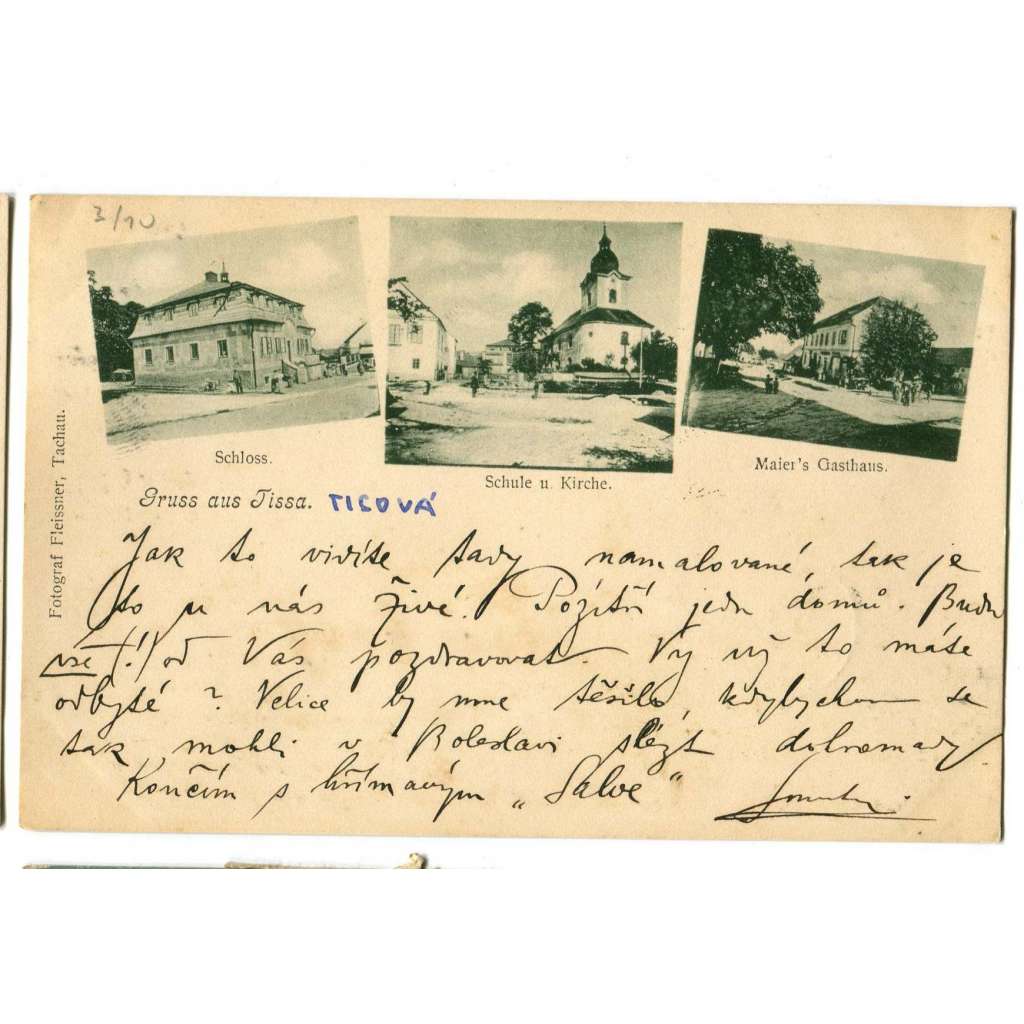 3/10
Schloss.
Schule u. Kirche.
Maier's Gasthaus.
Fotograf Fleissner, Tachau.
Gruss aus Tissa. TISOVÁ
Jak to vidíte tady namalované, tak je
to u nás živé. Pozítří jedu domů. Budu
vše (!) od Vás pozdravovat. Vy už to máte
odbyté? Velice by mne těšilo, kdybychom se
tak mohli v Boleslavi slézt dohromady
Končím s hřímavým „Salve"